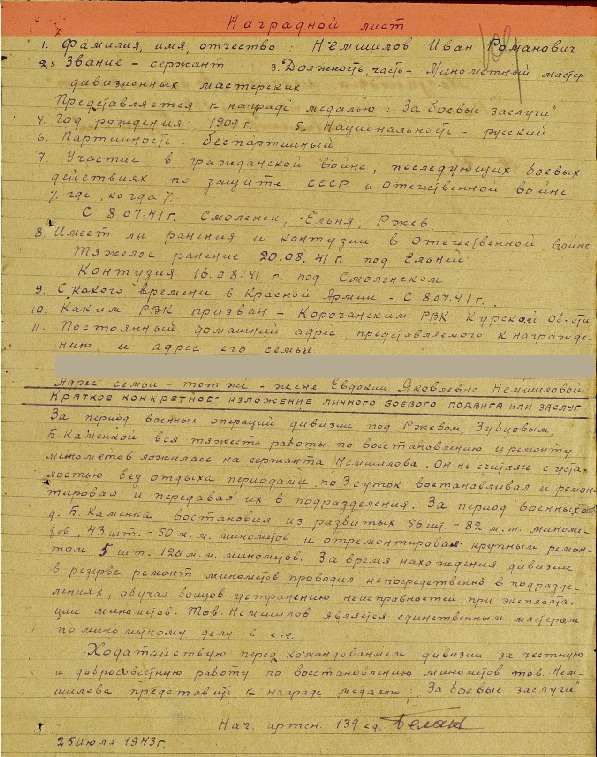 Наградной лист
1. Фамилия, имя, отчество: Немшилов Иван Романович
2. Звание - сержант 3. Должность, часть - Минометный мастер
дивизионных мастерских
Представляется к награде медалью: За боевые заслуги"
4. Год рождения 1909 г. 5. Национальность - русский
6. Партийность беспартийный
7. Участие в гражданской войне, последующих боевых
действиях по защите СССР и отечественной войне
/. где, когда /.
С 8.07.41 г. Смоленск, Ельня, Ржев
8. Имеет ли ранения и контузии в отечественной войне
Тяжолое ранение 20.08.41 г. под Ельней
Контузия 16.08.41 г. под Смоленском
9. С какого времени в Красной Армии - С 8.07.41 г.
10. Каким РВК призван - Корочанским РВК Курской области
11. Постоянный домашний адрес представляемого к награжде-
нию и адрес его семьи
Адрес семьи - тот же - жене Евдокии Яковлевне Немшиловой
Краткое конкретное изложение личного боевого подвига или заслуг
За период военных операций дивизии под Ржевом, Зубцовым
Б. Каменкой вся тяжесть работы по восстановлению и ремонту
минометов ложилась на сержанта Немшилова. Он не считаясь с уста-
лостью без отдыха периодами по 3 суток востанавливал и ремон-
тировал и передавал их в подразделения. За период военных
д. Б. Каменка востановил из разбитых 56 шт - 82 м.м. миноме-
тов, 43 шт. - 50 м.м. минометов и отремонтировал крупным ремон-
том 5 шт. 120 м.м. минометов. За время нахождения дивизии
в резерве ремонт минометов проводил непосредственно в подразде-
лениях, обучал бойцов устранению неисправностей при эксплоата-
ции минометов. Тов. Немшилов является единственным мастером
по минометному делу в
Ходатайствую перед командованием дивизии за честную
и добросовестную работу по восстановлению минометов тов. Нем-
шилова представить к награде медалью: За боевые заслуги"
Нач. артсн. 139 сд. Белак
25 июля 1943 г.